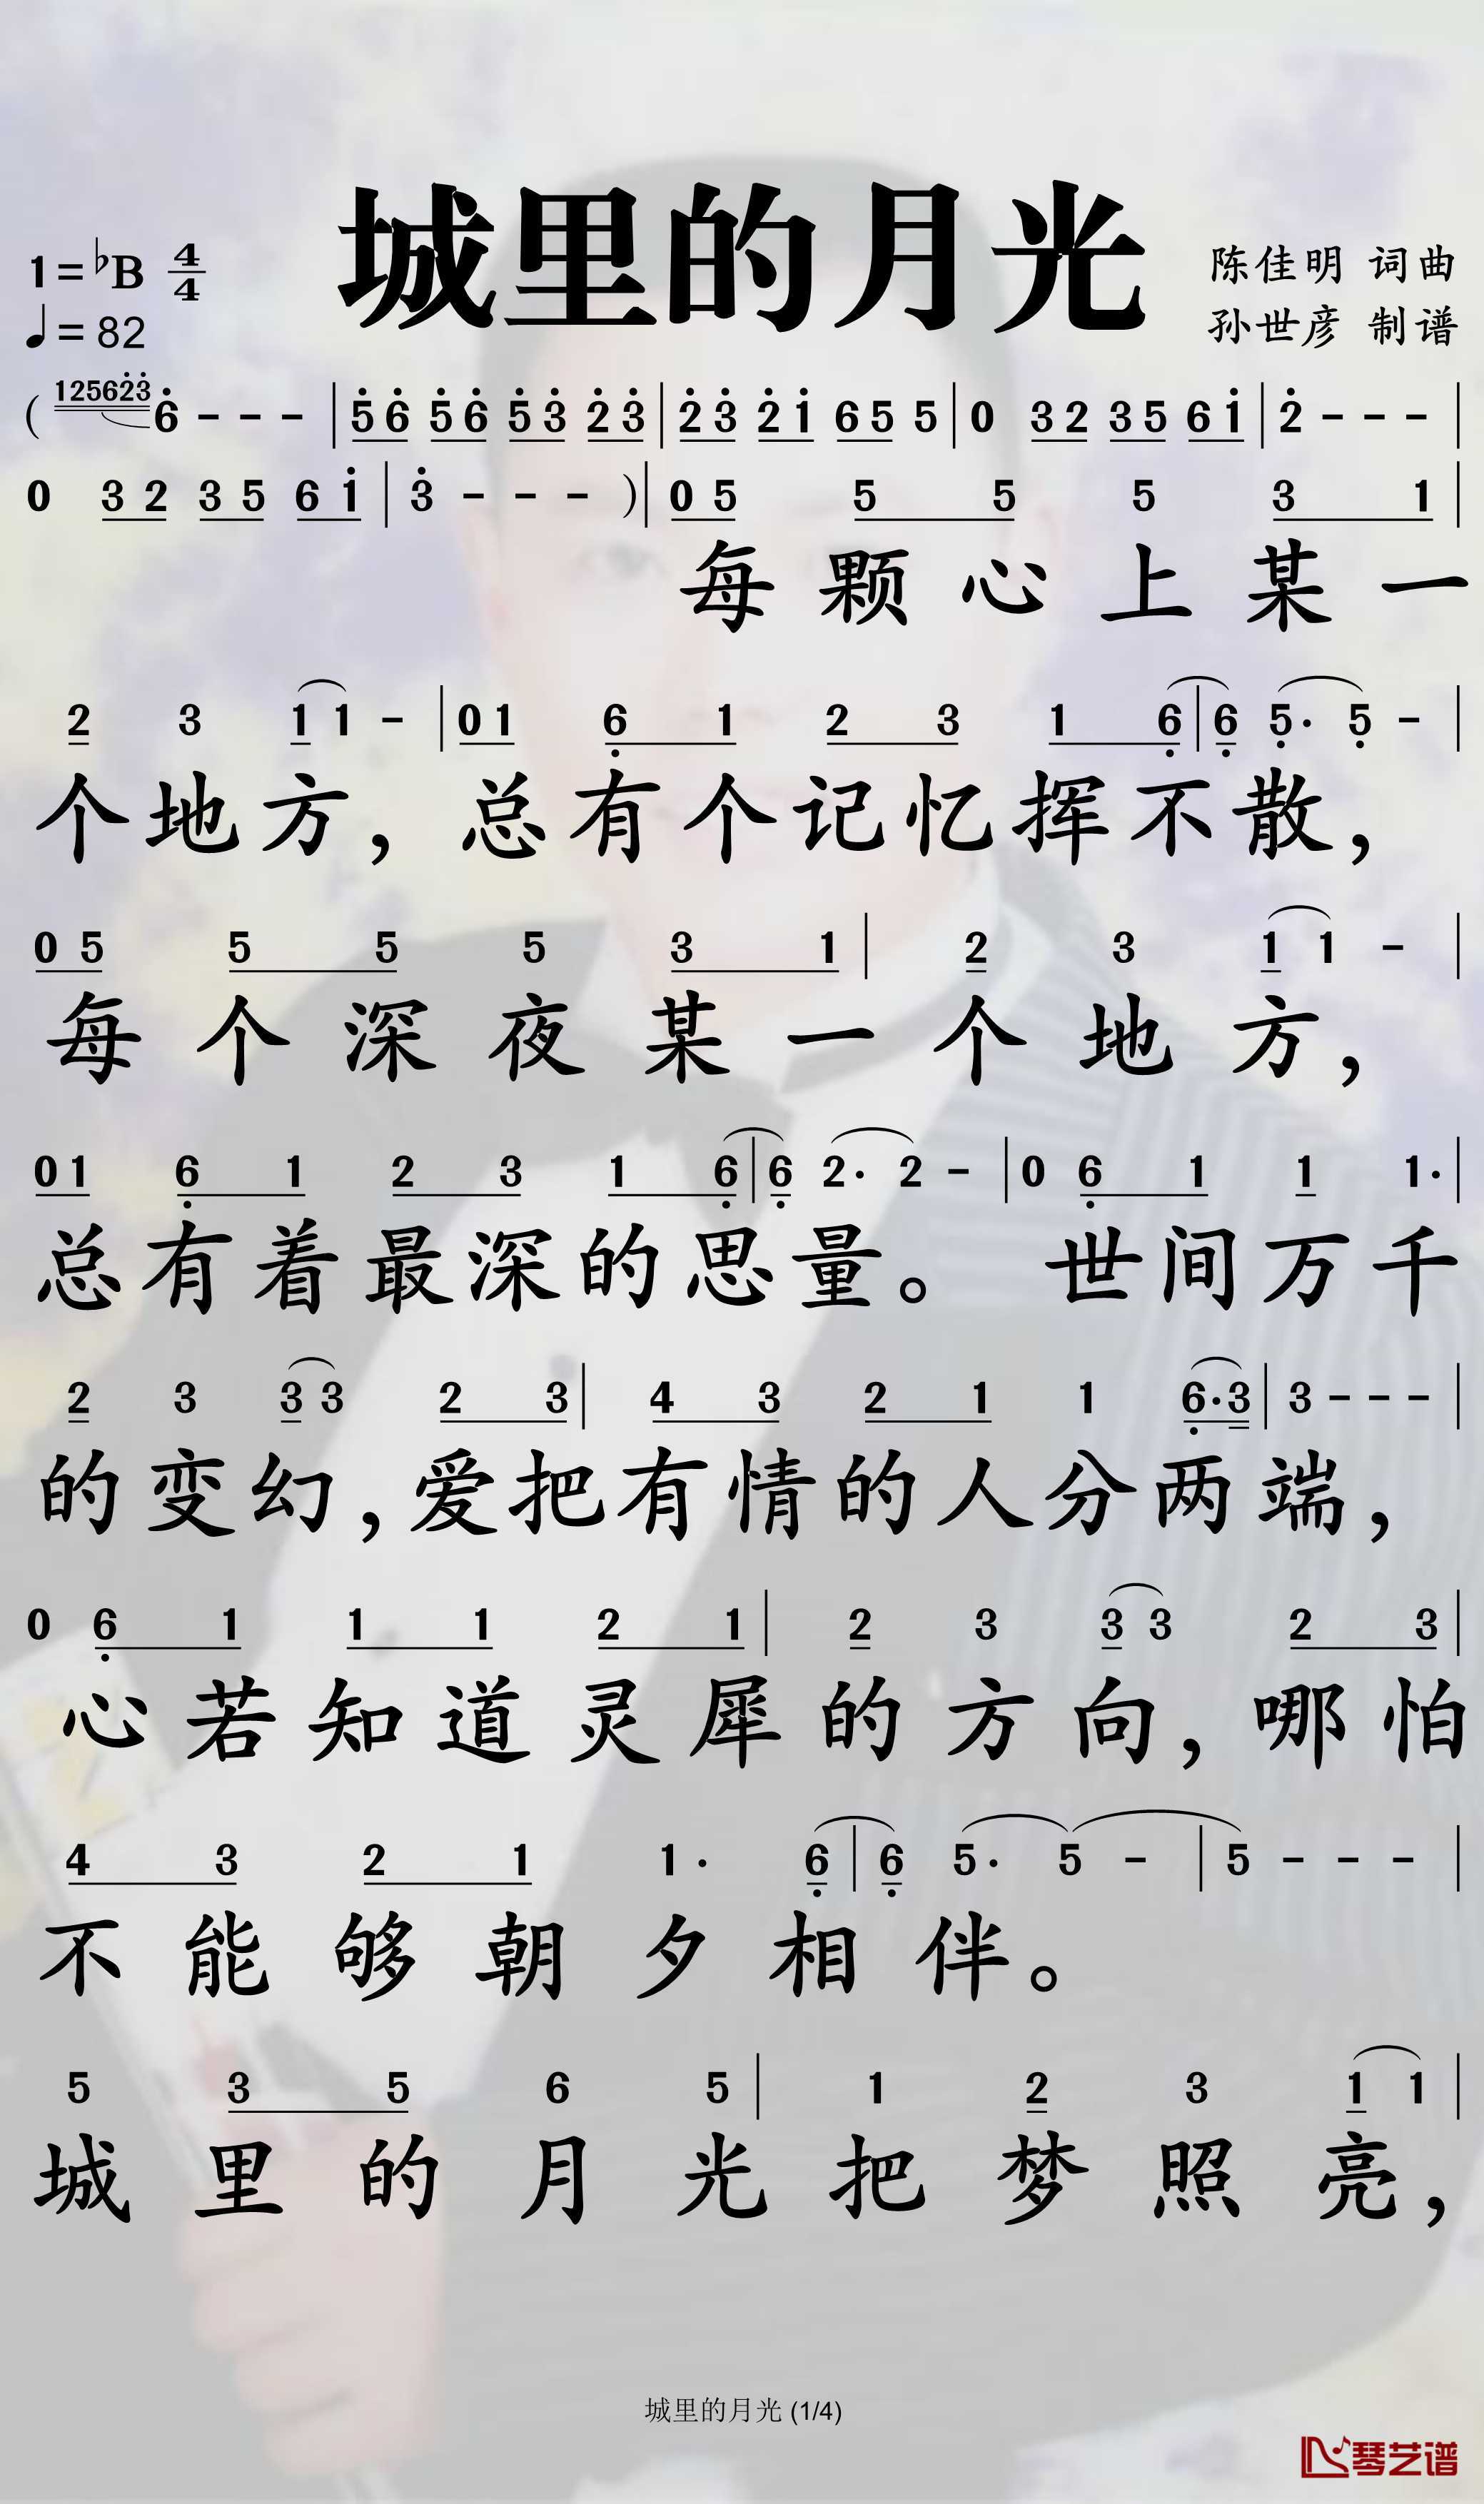 城里的月光
1=♭B 4/4
♩=82
陈佳明 词曲
孙世彦 制谱
( 1256236 - - - | 56 56 53 23 | 23 21 65 5 | 0 32 35 61 | 2 - - - |
0 32 35 61 | 3 - - - ) | 05 5 5 5 3 1 |
每颗心上某一
2 3 1 1 - | 01 6 1 2 3 1 6 | 6 5· 5 - |
个地方，总有个记忆挥不散，
05 5 5 5 3 1 | 2 3 1 1 - |
每个深夜某一个地方，
01 6 1 2 3 1 6 | 6 2· 2 - | 0 6 1 1 1· |
总有着最深的思量。世间万千
2 3 3 3 2 3 | 4 3 2 1 1 6·3 | 3 - - - |
的变幻，爱把有情的人分两端，
0 6 1 1 1 2 1 | 2 3 3 3 2 3 |
心若知道灵犀的方向，哪怕
4 3 2 1 1· 6 | 6 5· 5 - | 5 - - - |
不能够朝夕相伴。
5 3 5 6 5 | 1 2 3 1 1 |
城里的月光把梦照亮，
城里的月光 (1/4)
琴艺谱